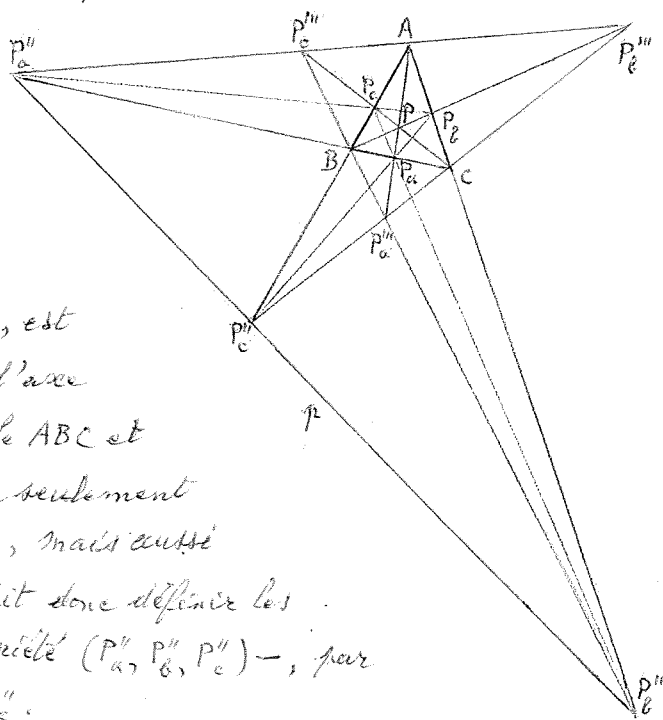 P'''c A
P''a P'''b
Pc P Pb
B Pa C
P'''a
, est
P''c
l'axe
p
le ABC et
seulement
, mais aussi
it donc définir les
riété (P''a, P''b, P''c) —, par
P''b